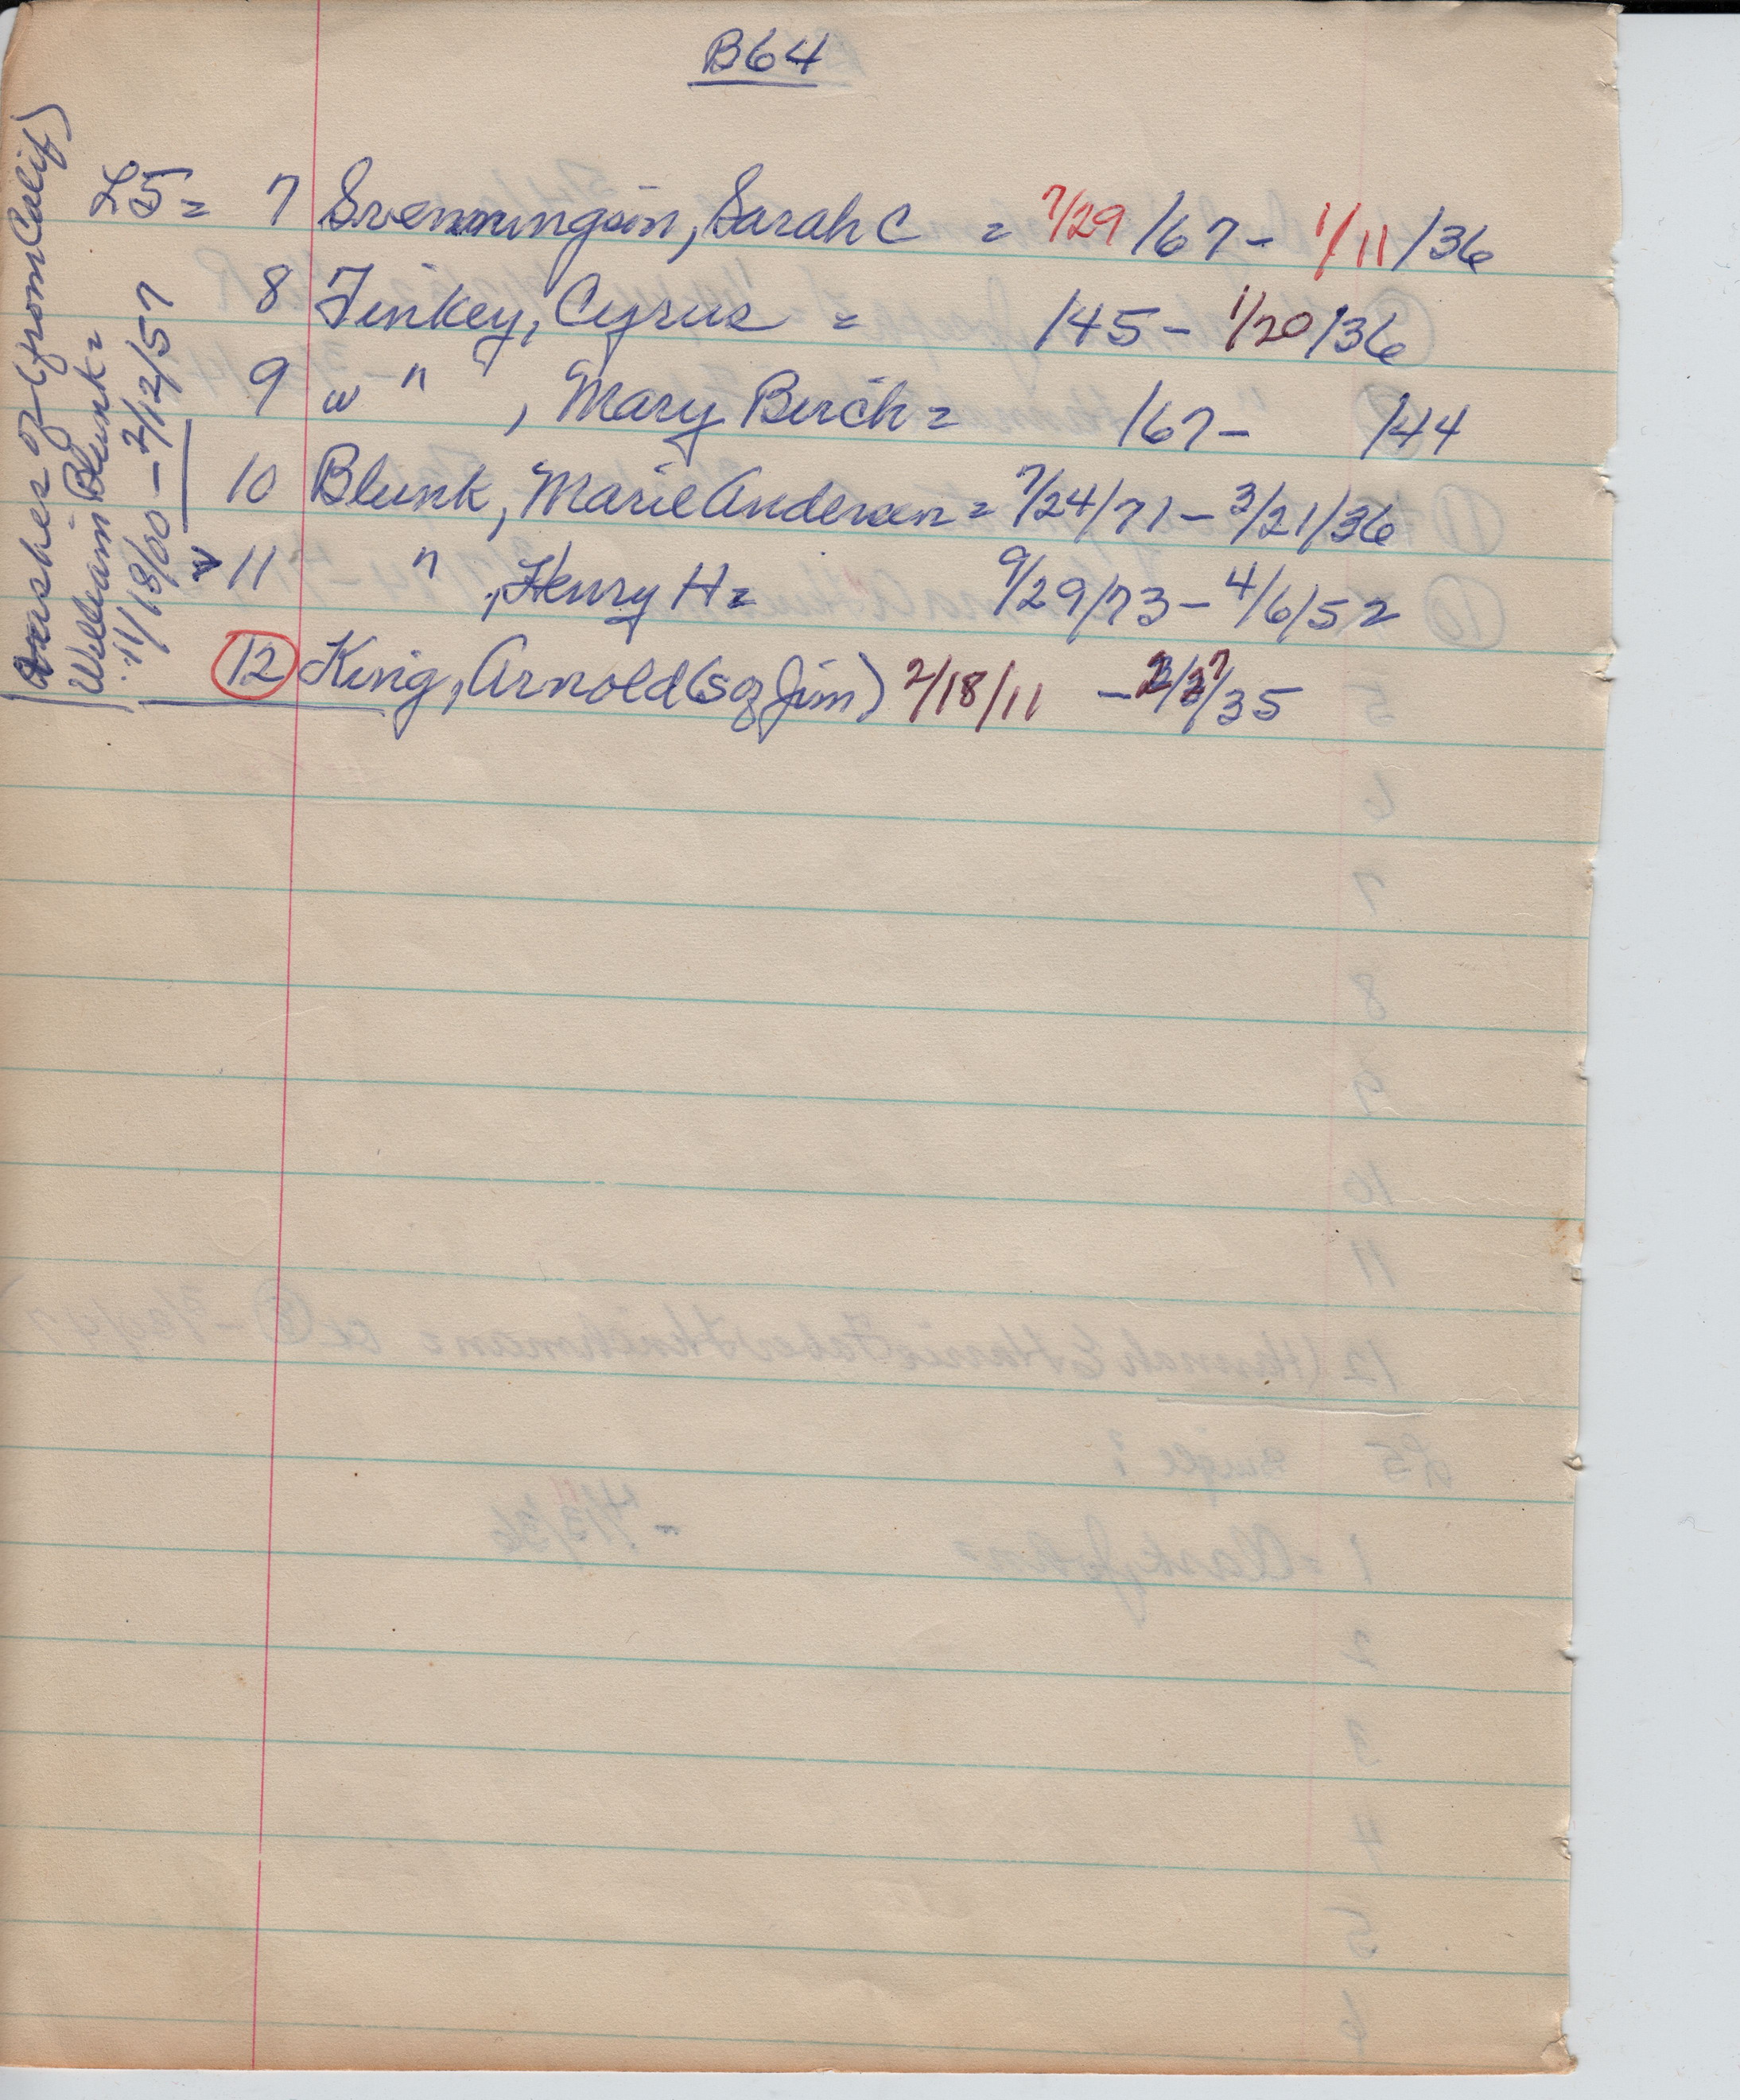 B64
L5= 7 Svenningsin, Sarah C = 7/29/67 - 1/11/36
8 Finkey, Cyrus = /45 - 1/20/36
9 " " , Mary Birch = /67 - /44
10 Blunk, Marie Andersen = 7/24/71 - 3/21/36
11 " , Henry H = 9/29/73 - 4/6/52
12 King, Arnold (S of Jim) 2/18/11 - /35
(Ashes of (from Calif)
William Blunk =
11/18/00 - 2/12/57